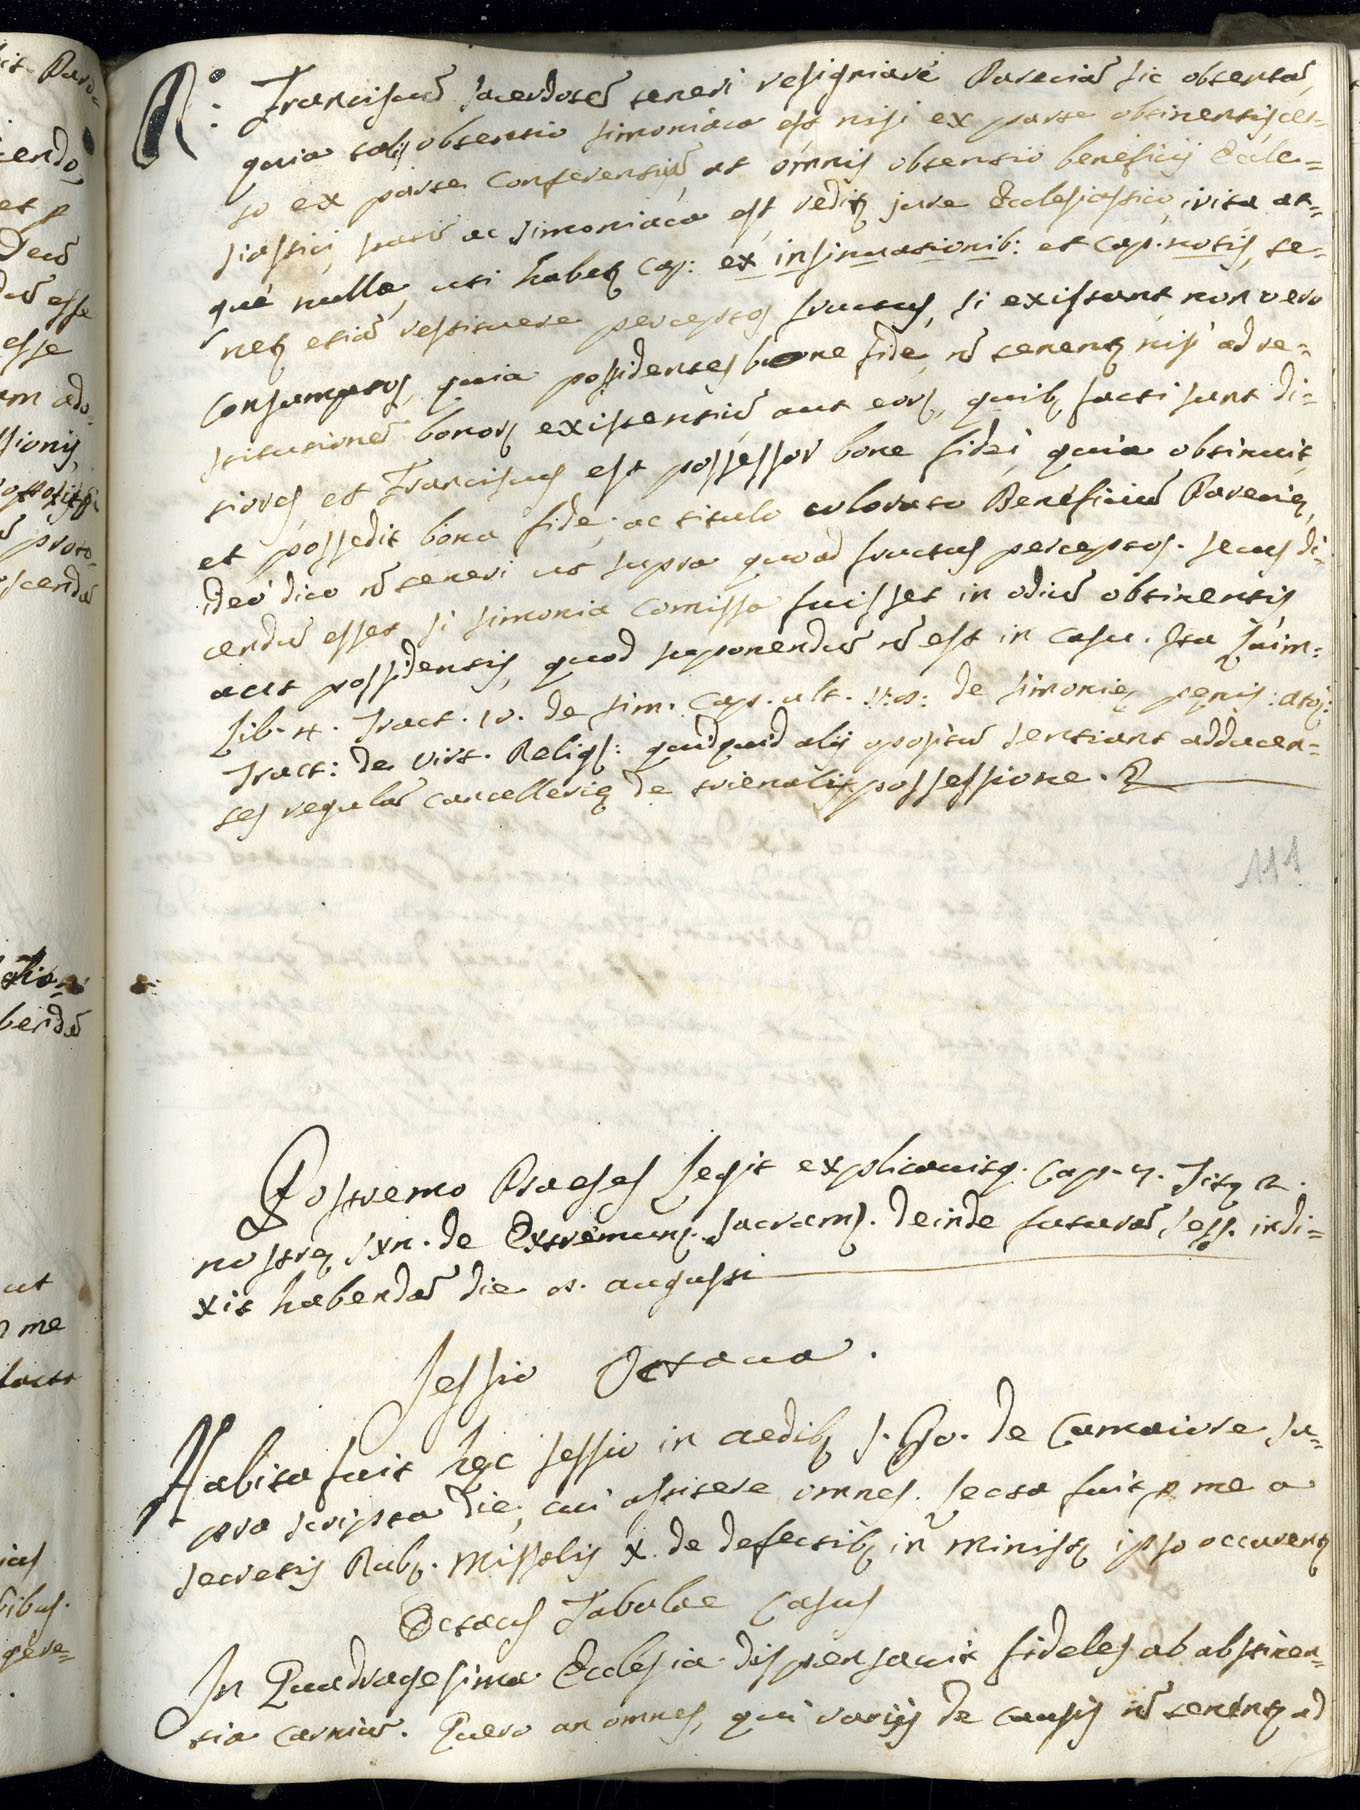 R: Franciscū sacerdotē teneri resignare Pareciā sic obtentā,
quia talis obtentio simoniaca est nisi ex parte obtinentis, cer-
to ex parte conferentiū, at omnis obtentio beneficii Eccle-
siastici, simoniaca est, redit jure Ecclesiastico, irita at-
que nulla, uti habetʒ Cap: ex insinuationib: et Cap. notis, te-
netʒ etiā restituere perceptos fructus, si existant, non vero
consumptos, quia possidentes bone fide, nō tenentʒ nisi ad re-
stitutionē bonorʒ existentiū aut eorʒ, quibʒ facti sunt di-
tiores, et Franciscus est possessor bone fidei, quia obtinuit,
et possedit bona fide, ac titulo colorato Beneficiū Parecię,
ideo dico nō teneri ut supra quoad fructus perceptos. secus di-
cendū esset si simonia comissa fuisset in odiū obtinentis
aut possidentis, quod suponendū nō est in casu. Ita Laim:
Lib. 4. Tract. 10. de sim. Cap. ult. de simonię penis:
Tract: de virt. Religʒ: quidquid alii opositū sentiant adducen-
tes regulā cancellerię de trienalis possessione.
111
Postremo Praeses legit explicauitqʒ. Cap. 7. Titʒ 2.
nostrę syn. de Extremunʒ. sacramʒ. deinde futurā sess. indi-
xit habendā die augusti
Sessio Octaua.
Habita fuit hęc sessio in aedibʒ S. Gio. de Camaiore su-
pra scripta die, cui assistere omnes. lecta fuit p me a
secretis Rubʒ. Missalis X. de defectibʒ in Ministʒ ipso occurentʒ
Octaus Tabulae Casus
In Quadragesima Ecclesia dispensauit fideles ab abstinen-
tia carniū. Quero an omnes, qui variis de causis nō tenentʒ ad